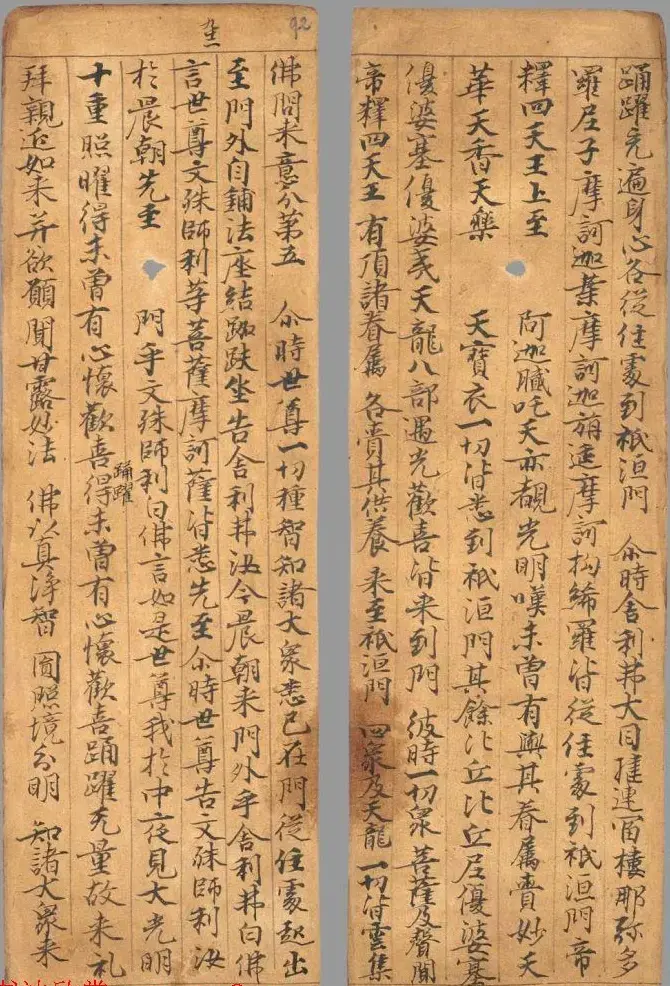 92
踊躍充遍身心各從住處到祇洹門 尒時舍利弗大目揵連富樓那弥多
羅尼子摩訶迦葉摩訶迦旃延摩訶拘絺羅皆從住處到祇洹門帝
釋四天王上至 阿迦膩吒天亦覩光明嘆未曾有與其眷属賫妙天
華天香天樂 天寶衣一切皆悉到祇洹門其餘比丘比丘尼優婆塞
優婆塞優婆夷天龍八部遇光歡喜皆来到門 彼時一切衆 菩薩及聲聞
帝釋四天王 有頂諸眷属 各賫其供養 来至祇洹門 四衆及天龍 一切皆雲集
佛問来意分第五 尒時世尊一切種智知諸大衆悉已在門從住處起出
至門外自鋪法座結跏趺坐告舍利弗汝今晨朝来門外乎舍利弗白佛
言世尊文殊師利等菩薩摩訶薩皆悉先至尒時世尊告文殊師利汝
於晨朝先至 門乎文殊師利白佛言如是世尊我於中夜見大光明
十重照曜得未曾有心懷歡喜踊躍得未曾有心懷歡喜踊躍无量故来礼
拜親近如来并欲願聞甘露妙法 佛以真淨智 圓照境分明 知諸大衆来